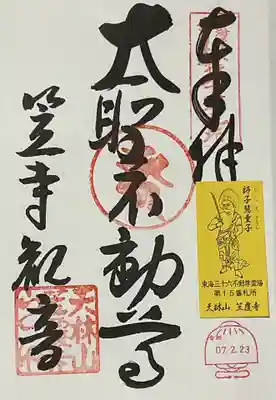 奉拝
大聖不動尊
笠寺観音
師子慧童子
東海三十六不動尊霊場
第15番札所
天林山 笠覆寺
令和
07.2.23
天林山